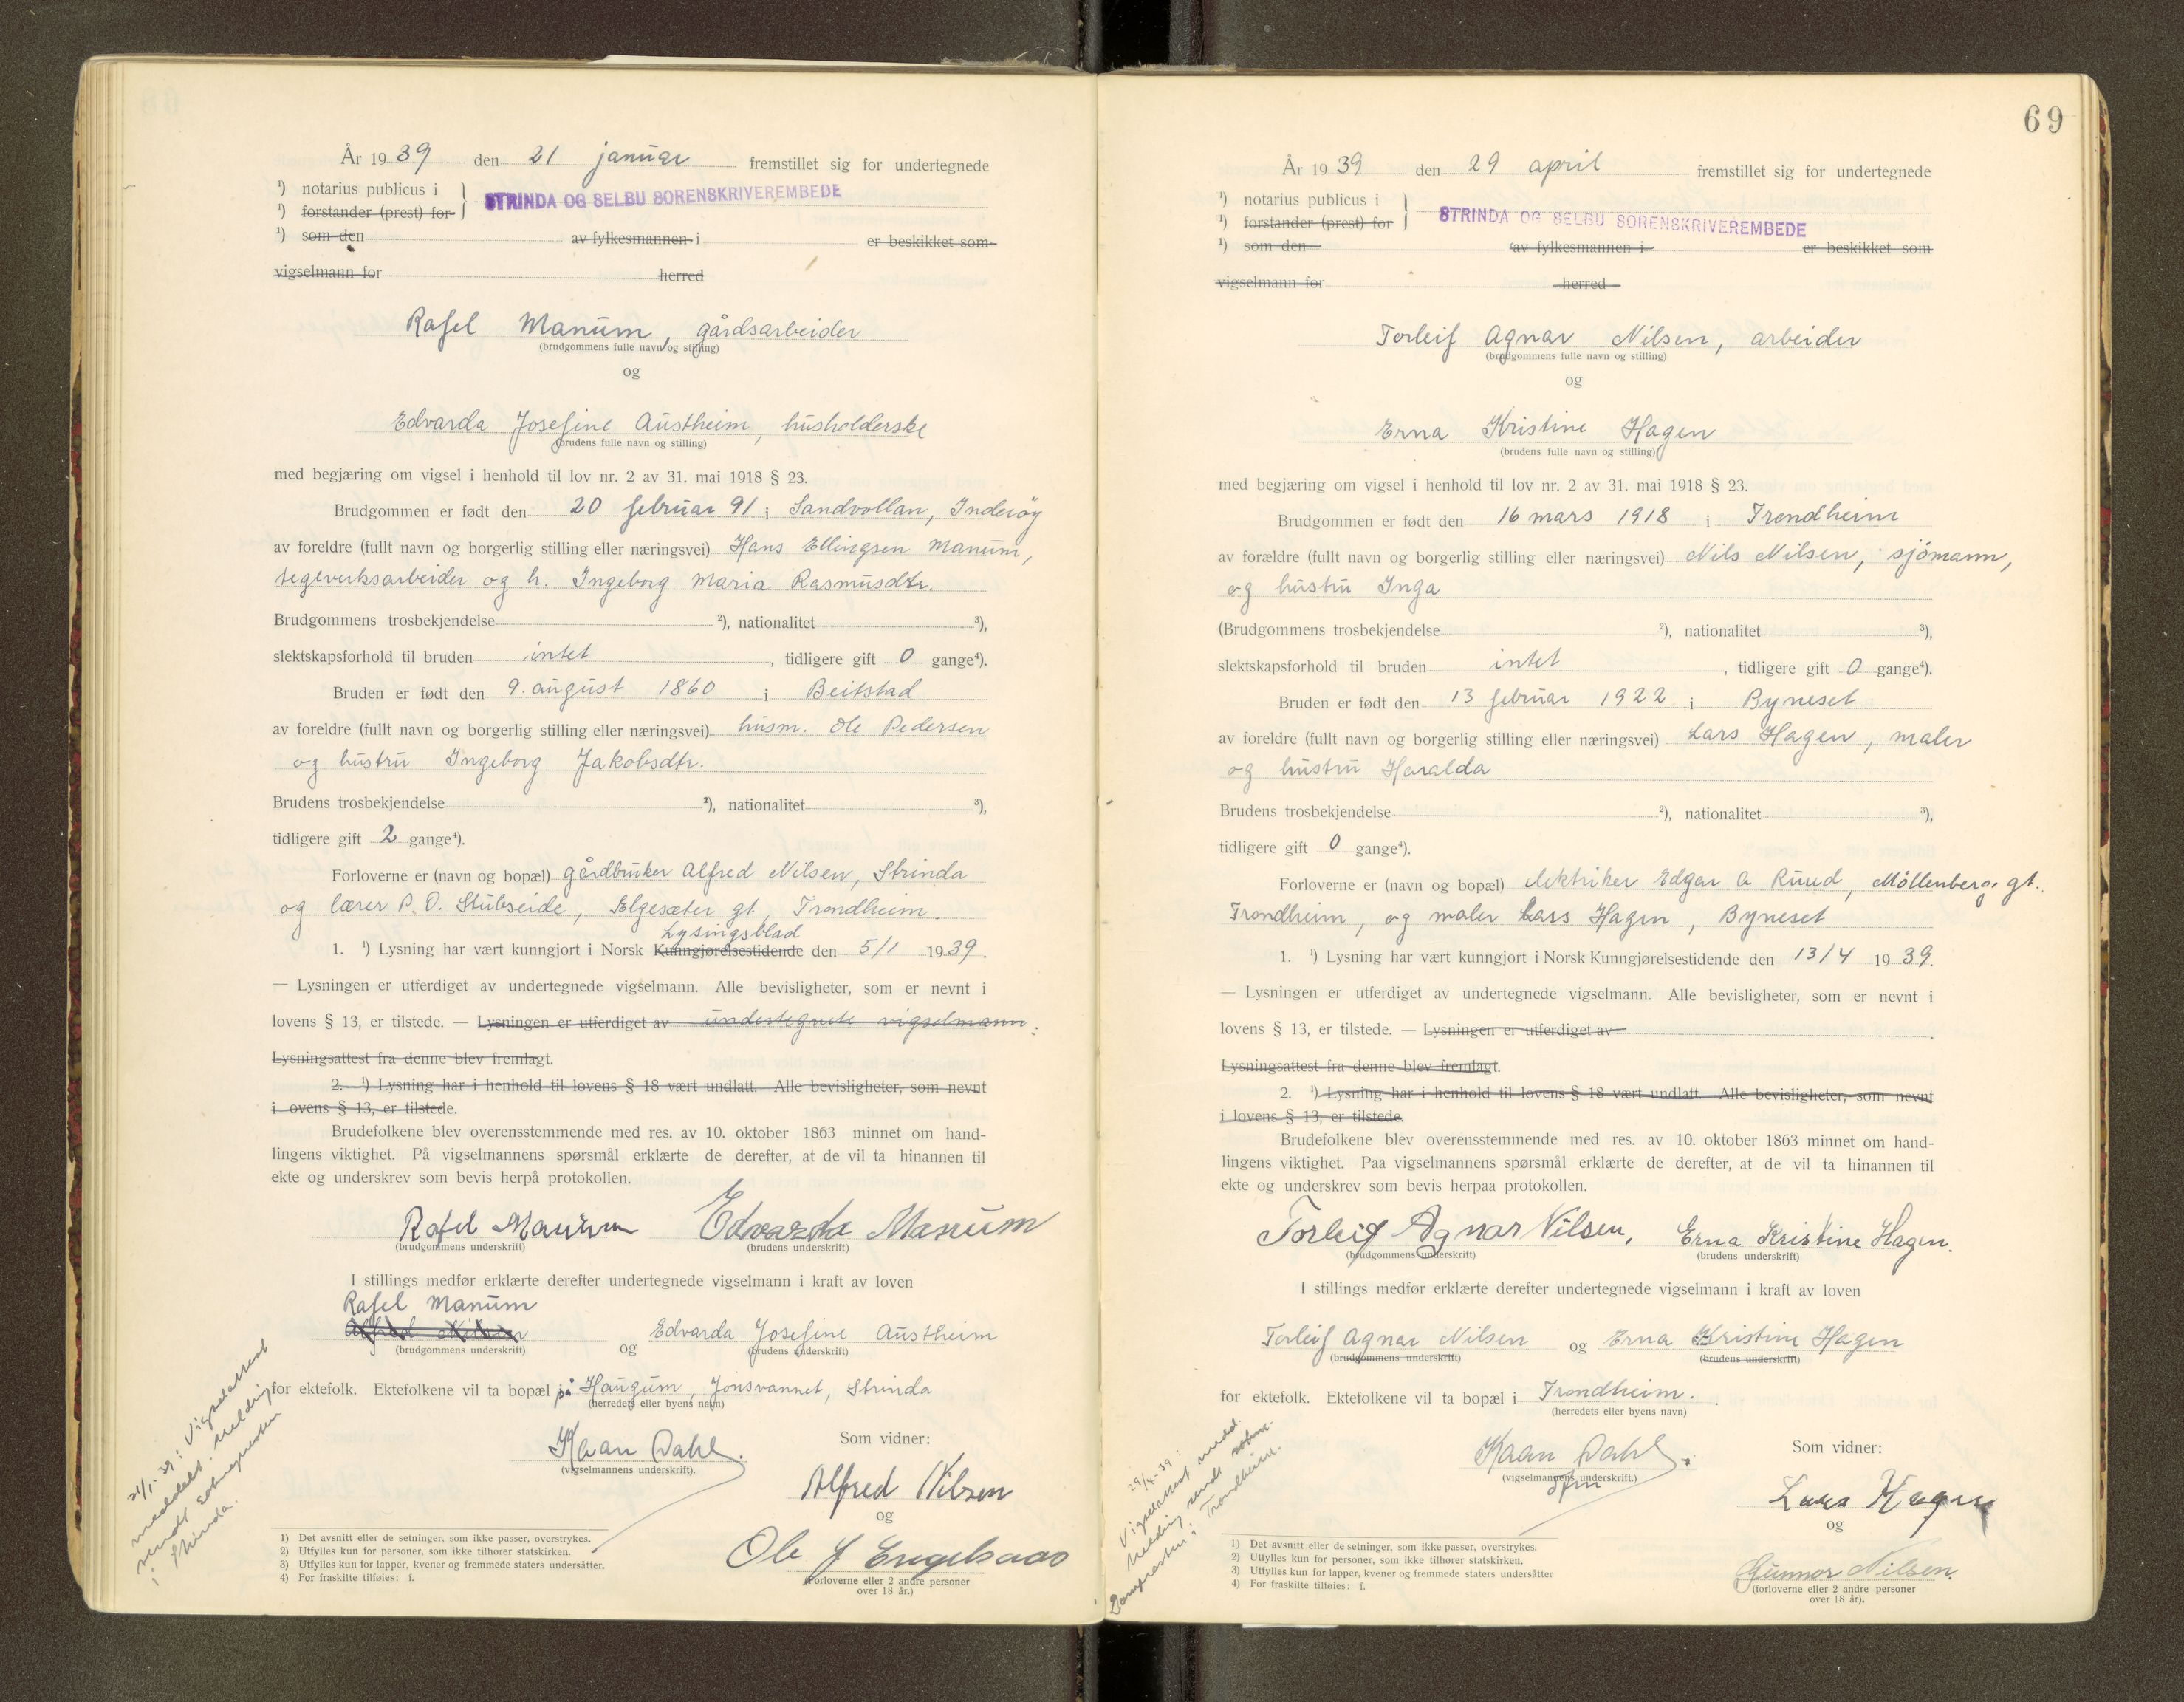 År 1939 den 21 januar fremstillet sig for undertegnede
¹) notarius publicus i
¹) forstander (prest) for
STRINDA OG SELBU SORENSKRIVEREMBEDE
¹) som den av fylkesmannen i er beskikket som
vigselmann for herred
Rafel Manum, gårdsarbeider
(brudgommens fulle navn og stilling)
og
Edvarda Josefine Austheim, husholderske
(brudens fulle navn og stilling)
med begjæring om vigsel i henhold til lov nr. 2 av 31. mai 1918 § 23.
Brudgommen er født den 20 februar 91 i Sandvollan, Inderöy
av foreldre (fullt navn og borgerlig stilling eller næringsvei) Hans Ellingsen Manum,
segeverksarbeider og h. Ingeborg Maria Rasmusdtr.
Brudgommens trosbekjendelse ²), nationalitet ³),
slektskapsforhold til bruden intet , tidligere gift 0 gange⁴).
Bruden er født den 9. august 1860 i Beitstad
av foreldre (fullt navn og borgerlig stilling eller næringsvei) husm. Ole Pedersen
og hustru Ingeborg Jakobsdtr.
Brudens trosbekjendelse ²), nationalitet ³),
tidligere gift 2 gange⁴).
Forloverne er (navn og bopæl) gårdbruker Alfred Nilsen, Strinda
og lærer P. O. Stubseide, Elgesæter gt, Trondheim.
Lysingsblad
1. ¹) Lysning har vært kunngjort i Norsk Kunngjørelsestidende den 5/1 1939.
— Lysningen er utferdiget av undertegnede vigselmann. Alle bevisligheter, som er nevnt i
lovens § 13, er tilstede. — Lysningen er utferdiget av undertegnete vigselmann.
Lysningsattest fra denne blev fremlagt.
2. ¹) Lysning har i henhold til lovens § 18 vært undlatt. Alle bevisligheter, som nevnt
i ovens § 13, er tilstede.
Brudefolkene blev overensstemmende med res. av 10. oktober 1863 minnet om hand-
lingens viktighet. På vigselmannens spørsmål erklærte de derefter, at de vil ta hinannen til
ekte og underskrev som bevis herpå protokollen.
Rafel Manum Edvarda Manum
(brudgommens underskrift) (brudens underskrift)
I stillings medfør erklærte derefter undertegnede vigselmann i kraft av loven
Rafel Manum
Alfred Nilsen og Edvarda Josefine Austheim
(brudgommens underskrift) (brudens underskrift)
for ektefolk. Ektefolkene vil ta bopæl på Haugum, Jonsvannet, Strinda
(herredets eller byens navn)
Kaan Dahl.
(vigselmannens underskrift).
Som vidner:
Alfred Nilsen
og
Ole J Engelsaas
(forloverne eller 2 andre personer
over 18 år.)
21/1-39: Vigselattest
meddelt. Melding
sendt soknepresten
i Strinda.
1) Det avsnitt eller de setninger, som ikke passer, overstrykes.
2) Utfylles kun for personer, som ikke tilhører statskirken.
3) Utfylles kun for lapper, kvener og fremmede staters undersåtter.
4) For fraskilte tilføies: f.
69
År 1939 den 29 april fremstillet sig for undertegnede
¹) notarius publicus i
¹) forstander (prest) for
STRINDA OG SELBU SORENSKRIVEREMBEDE
¹) som den av fylkesmannen i er beskikket som
vigselmann for herred
Torleif Agnar Nilsen, arbeider
(brudgommens fulle navn og stilling)
og
Erna Kristine Hagen
(brudens fulle navn og stilling)
med begjæring om vigsel i henhold til lov nr. 2 av 31. mai 1918 § 23.
Brudgommen er født den 16 mars 1918 i Trondheim
av forældre (fullt navn og borgerlig stilling eller næringsvei) Nils Nilsen, sjömann,
og hustru Inga
(Brudgommens trosbekjendelse ²), nationalitet ³),
slektskapsforhold til bruden intet , tidligere gift 0 gange⁴).
Bruden er født den 13 februar 1922 i Byneset
av foreldre (fullt navn og borgerlig stilling eller næringsvei) Lars Hagen, maler
og hustru Haralda
Brudens trosbekjendelse ²), nationalitet ³),
tidligere gift 0 gange⁴).
Forloverne er (navn og bopæl) elektriker Edgar A Ruud, Möllenberg gt.
Trondheim, og maler Lars Hagen, Byneset
1. ¹) Lysning har vært kunngjort i Norsk Kunngjørelsestidende den 13/4 1939.
— Lysningen er utferdiget av undertegnede vigselmann. Alle bevisligheter, som er nevnt i
lovens § 13, er tilstede. — Lysningen er utferdiget av .
Lysningsattest fra denne blev fremlagt.
2. ¹) Lysning har i henhold til lovens § 18 vært undlatt. Alle bevisligheter, som nevnt
i lovens § 13, er tilstede.
Brudefolkene blev overensstemmende med res. av 10. oktober 1863 minnet om hand-
lingens viktighet. Paa vigselmannens spørsmål erklærte de derefter, at de vil ta hinannen til
ekte og underskrev som bevis herpaa protokollen.
Torleif Agnar Nilsen. Erna Kristine Hagen.
(brudgommens underskrift) (brudens underskrift)
I stillings medfør erklærte derefter undertegnede vigselmann i kraft av loven
Torleif Agnar Nilsen og Erna Kristine Hagen
(brudgommens underskrift) (brudens underskrift)
for ektefolk. Ektefolkene vil ta bopæl i Trondheim.
(herredets eller byens navn)
Kaan Dahl.
(vigselmannens underskrift.)
Som vidner:
Lars Hagen
og
Gunnar Nilsen.
(forloverne eller 2 andre personer
over 18 år).
29/4-39:
Vigselattest medd.
Melding sendt
Domprosten i Trondheim.
1) Det avsnitt eller de setninger, som ikke passer, overstrykes.
2) Utfylles kun for personer, som ikke tilhører statskirken.
3) Utfylles kun for lapper, kvener og fremmede staters undersåtter
4) For fraskilte tilføies: f.